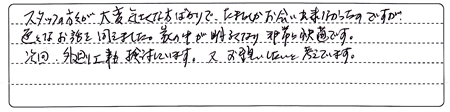 スタッフの方々が大変気さくな方ばかりで、たまにしかお会い出来なかったのですが
色々なお話を聞けました。家の中が明るくなり非常に快適です。
次回、外回り工事検討しています。又お願いしたいと考えています。